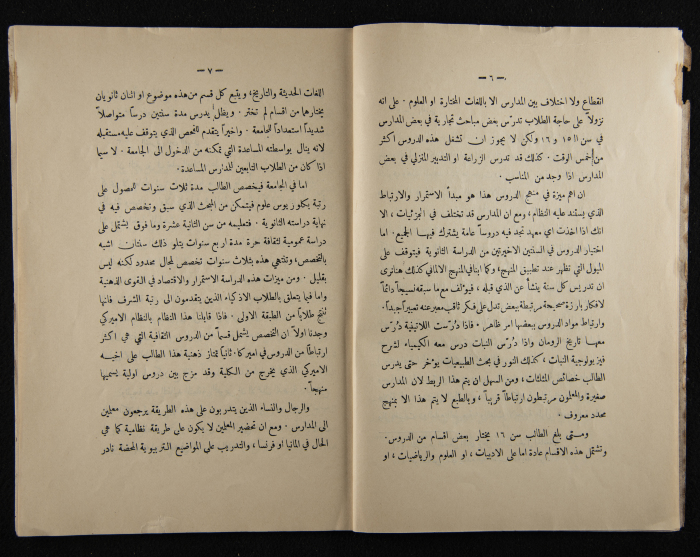 — ٦ —
انقطاع ولا اختلاف بين المدارس الا باللغات المختارة او العلوم . على انه
نزولاً على حاجة الطلاب تدرّس بعض مباحث تجارية في بعض المدارس
في سن الـ ١٥ و ١٦ ولكن لا يجوز ان تشغل هذه الدروس اكثر
من خمس الوقت . كذلك قد تدرس الزراعة او التدبير المنزلي في بعض
المدارس اذا وجد من المناسب .
ان اهم ميزة في منهج الدروس هذا هو مبدأ الاستمرار والارتباط
الذي يستند عليه النظام ، ومع ان المدارس قد تختلف في الجزئيات ، الا
انك اذا اخذت اي معهد تجد فيه دروساً عامة يشترك فيها الجميع . اما
اختيار الدروس في السنتين الاخيرتين من الدراسة الثانوية فيتوقف على
الميول التي تظهر عند تطبيق المنهج ، وكما رأينا في المنهج الالماني كذلك هنا نرى
ان تدريس كل سنة ينشأ عن الذي قبله ، فيؤلف مع ما سبقه نسيجاً دائماً
لافكار بارزة صحيحة مرتبطة ببعض تدل على فكر ثاقب معبر عنه تعبيراً جيداً .
وارتباط مواد الدروس ببعضها امر ظاهر ، فاذا دُرّست اللاتينية دُرّس
معها تاريخ الرومان واذا دُرّس النبات درس معه الكيمياء لشرح
فيزيولوجية النبات ، كذلك النور في بحث الطبيعيات يؤخر حتى يدرس
الطالب خصائص المثلثات ، ومن السهل ان يتم هذا الربط لان المدارس
صغيرة والمعلمون مرتبطون ارتباطاً قريباً ، وبالطبع لا يتم هذا الا بمنهج
محدد معروف .
ومتى بلغ الطالب سن ١٦ يختار بعض اقسام من الدروس .
وتشتمل هذه الاقسام عادة اما على الادبيات ، او العلوم والرياضيات ، او
— ٧ —
اللغات الحديثة والتاريخ ، ويتبع كل قسم من هذه موضوع او اثنان ثانويان
يختارهما من اقسام لم تختر . ويظل يدرس مدة سنتين درساً متواصلاً
شديداً استعداداً للجامعة . واخيراً يتقدم للفحص الذي يتوقف عليه مستقبله
لانه ينال بواسطته المساعدة التي تمكنه من الدخول الى الجامعة . لا سيما
اذا كان من الطلاب التابعين للمدارس المساعدة .
اما في الجامعة فيخصص الطالب مدة ثلاث سنوات للحصول على
رتبة بكلوريوس علوم فيتمكن من البحث الذي سبق وتخصص فيه في
نهاية دراسته الثانوية . فتعليمه من سن الثانية عشرة وما فوق يشتمل على
دراسة عمومية لثقافة حرة مدة اربع سنوات يتلو ذلك سنتان اشبه
بالتخصص ، وتنتهي هذه بثلاث سنوات تخصص لمجال محدود لكنه ليس
بقليل . ومن ميزات هذه الدراسة الاستمرار والاقتصاد في القوى الذهنية
واما فيما يتعلق بالطلاب الاذكياء الذين يتقدمون الى رتبة الشرف فانها
تنتج طلاباً من الطبقة الاولى . فاذا قابلنا هذا النظام بالنظام الاميركي
وجدنا اولاً ان التخصص يشمل قسماً من الدروس الثقافية التي هي اكثر
ارتباطاً من الدروس في اميركا . ثانياً تمتاز ذهنية هذا الطالب على اخيه
الاميركي الذي يخرج من الكلية وقد مزج بين دروس اولية يسميها
منهجاً .
والرجال والنساء الذين يتدربون على هذه الطريقة يرجعون معلمين
الى المدارس . ومع ان تحضير المعلمين لا يكون على طريقة نظامية كما هي
الحال في المانيا او فرنسا ، والتدريب على المواضيع التربيوية المحضة نادر